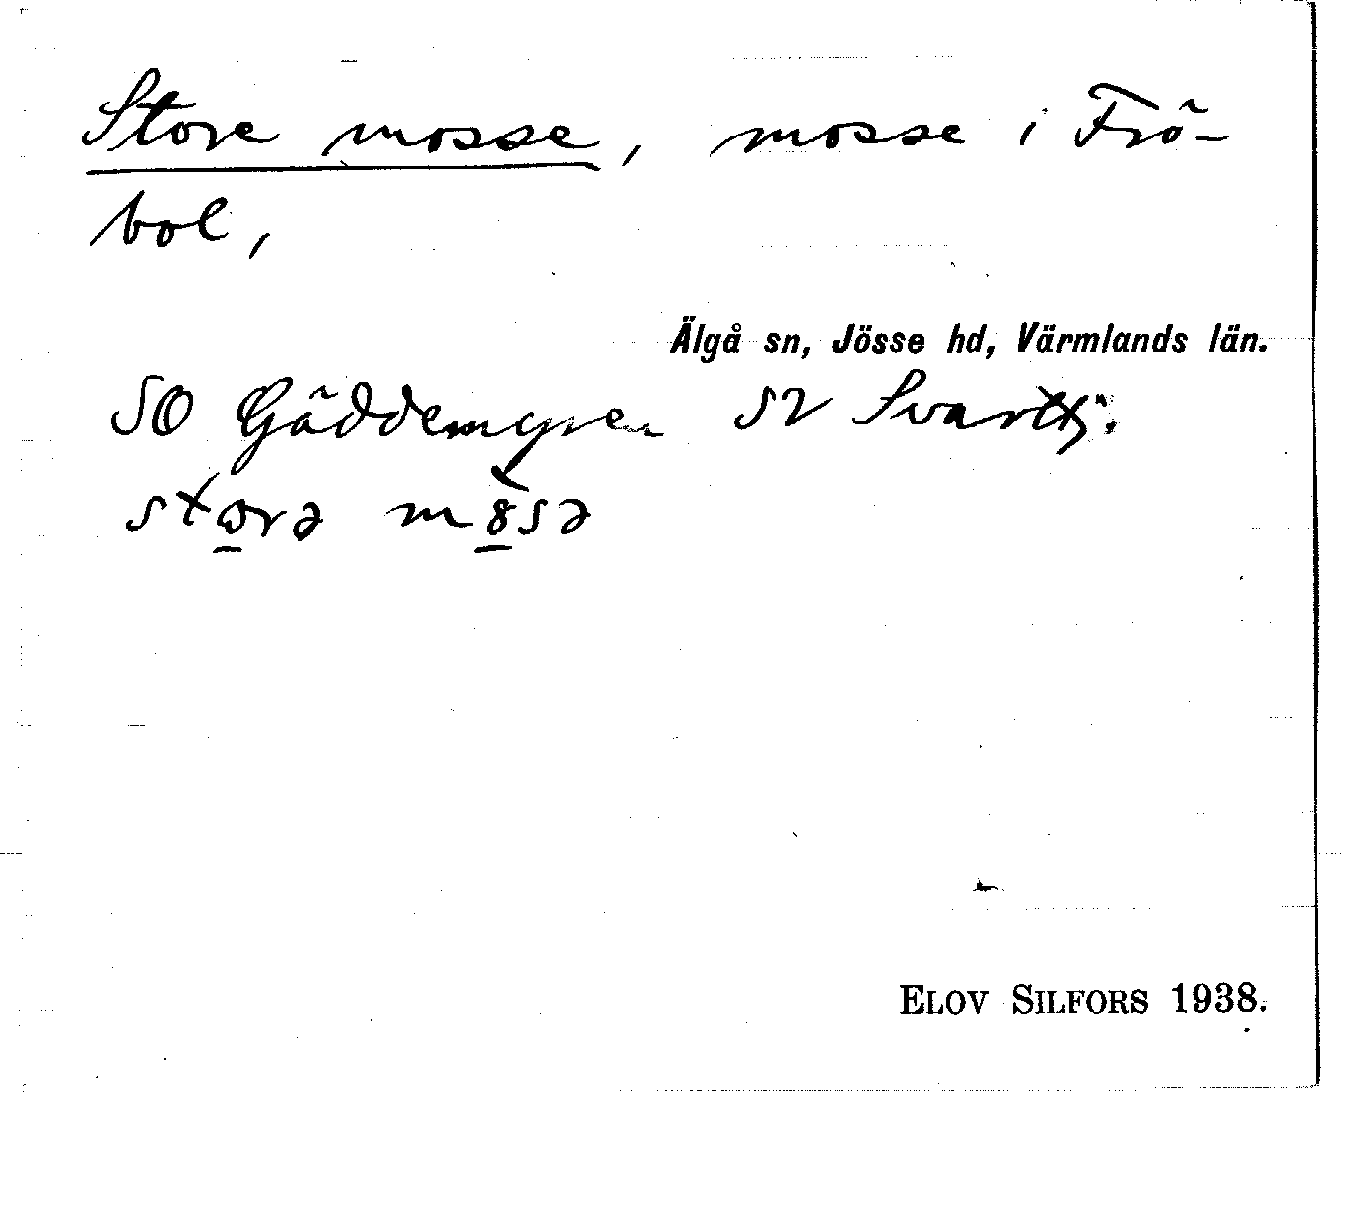 Store mosse, mosse i Frö-
bol,
Älgå sn, Jösse hd, Värmlands län.
SO Gäddemyren SV
storə m8sə
ELOV SILFORS 1938.